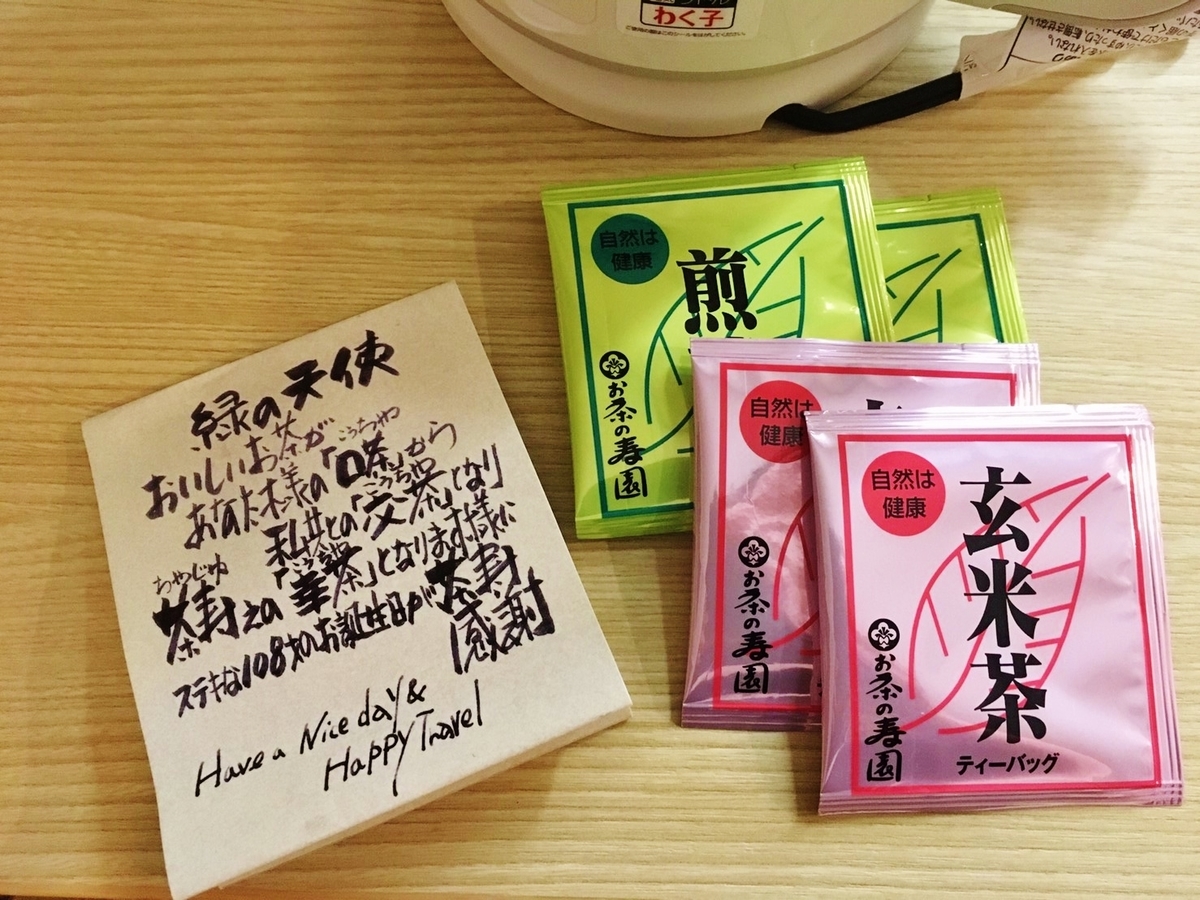 わく子
ご使用の際はこのシールをはがしてください。
自然は
健康
煎
お茶の寿園
自然は
健康
お茶の寿園
自然は
健康
玄米茶
お茶の寿園
ティーバッグ
緑の天使
おいしいお茶が
こうちゃ
あなた様の「口茶」から
こうちゃ
私共との「交茶」となり
「幸茶」となります様に
ちゃじゅ
茶寿
ステキな108才のお誕生日が茶寿
感謝
Have a Nice day &
Happy Travel